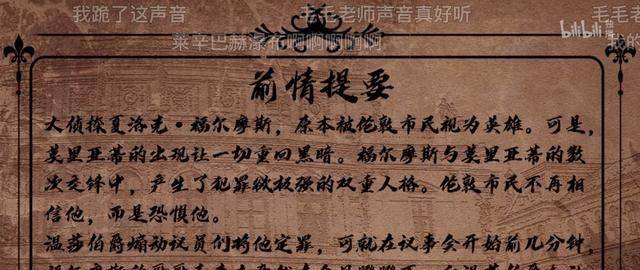 我跪了这声音
毛毛老师声音真好听
毛毛老
莱辛巴赫瀑布啊啊啊啊啊
bilibili
我的
前情提要
大侦探夏洛克·福尔摩斯，原本被伦敦市民视为英雄。可是，
莫里亚蒂的出现让一切重回黑暗。福尔摩斯与莫里亚蒂的数
次交锋中，产生了犯罪欲极强的双重人格。伦敦市民不再相
信他，而是恐惧他。
温莎伯爵煽动议员们将他定罪，可就在议事会开始前几分钟，